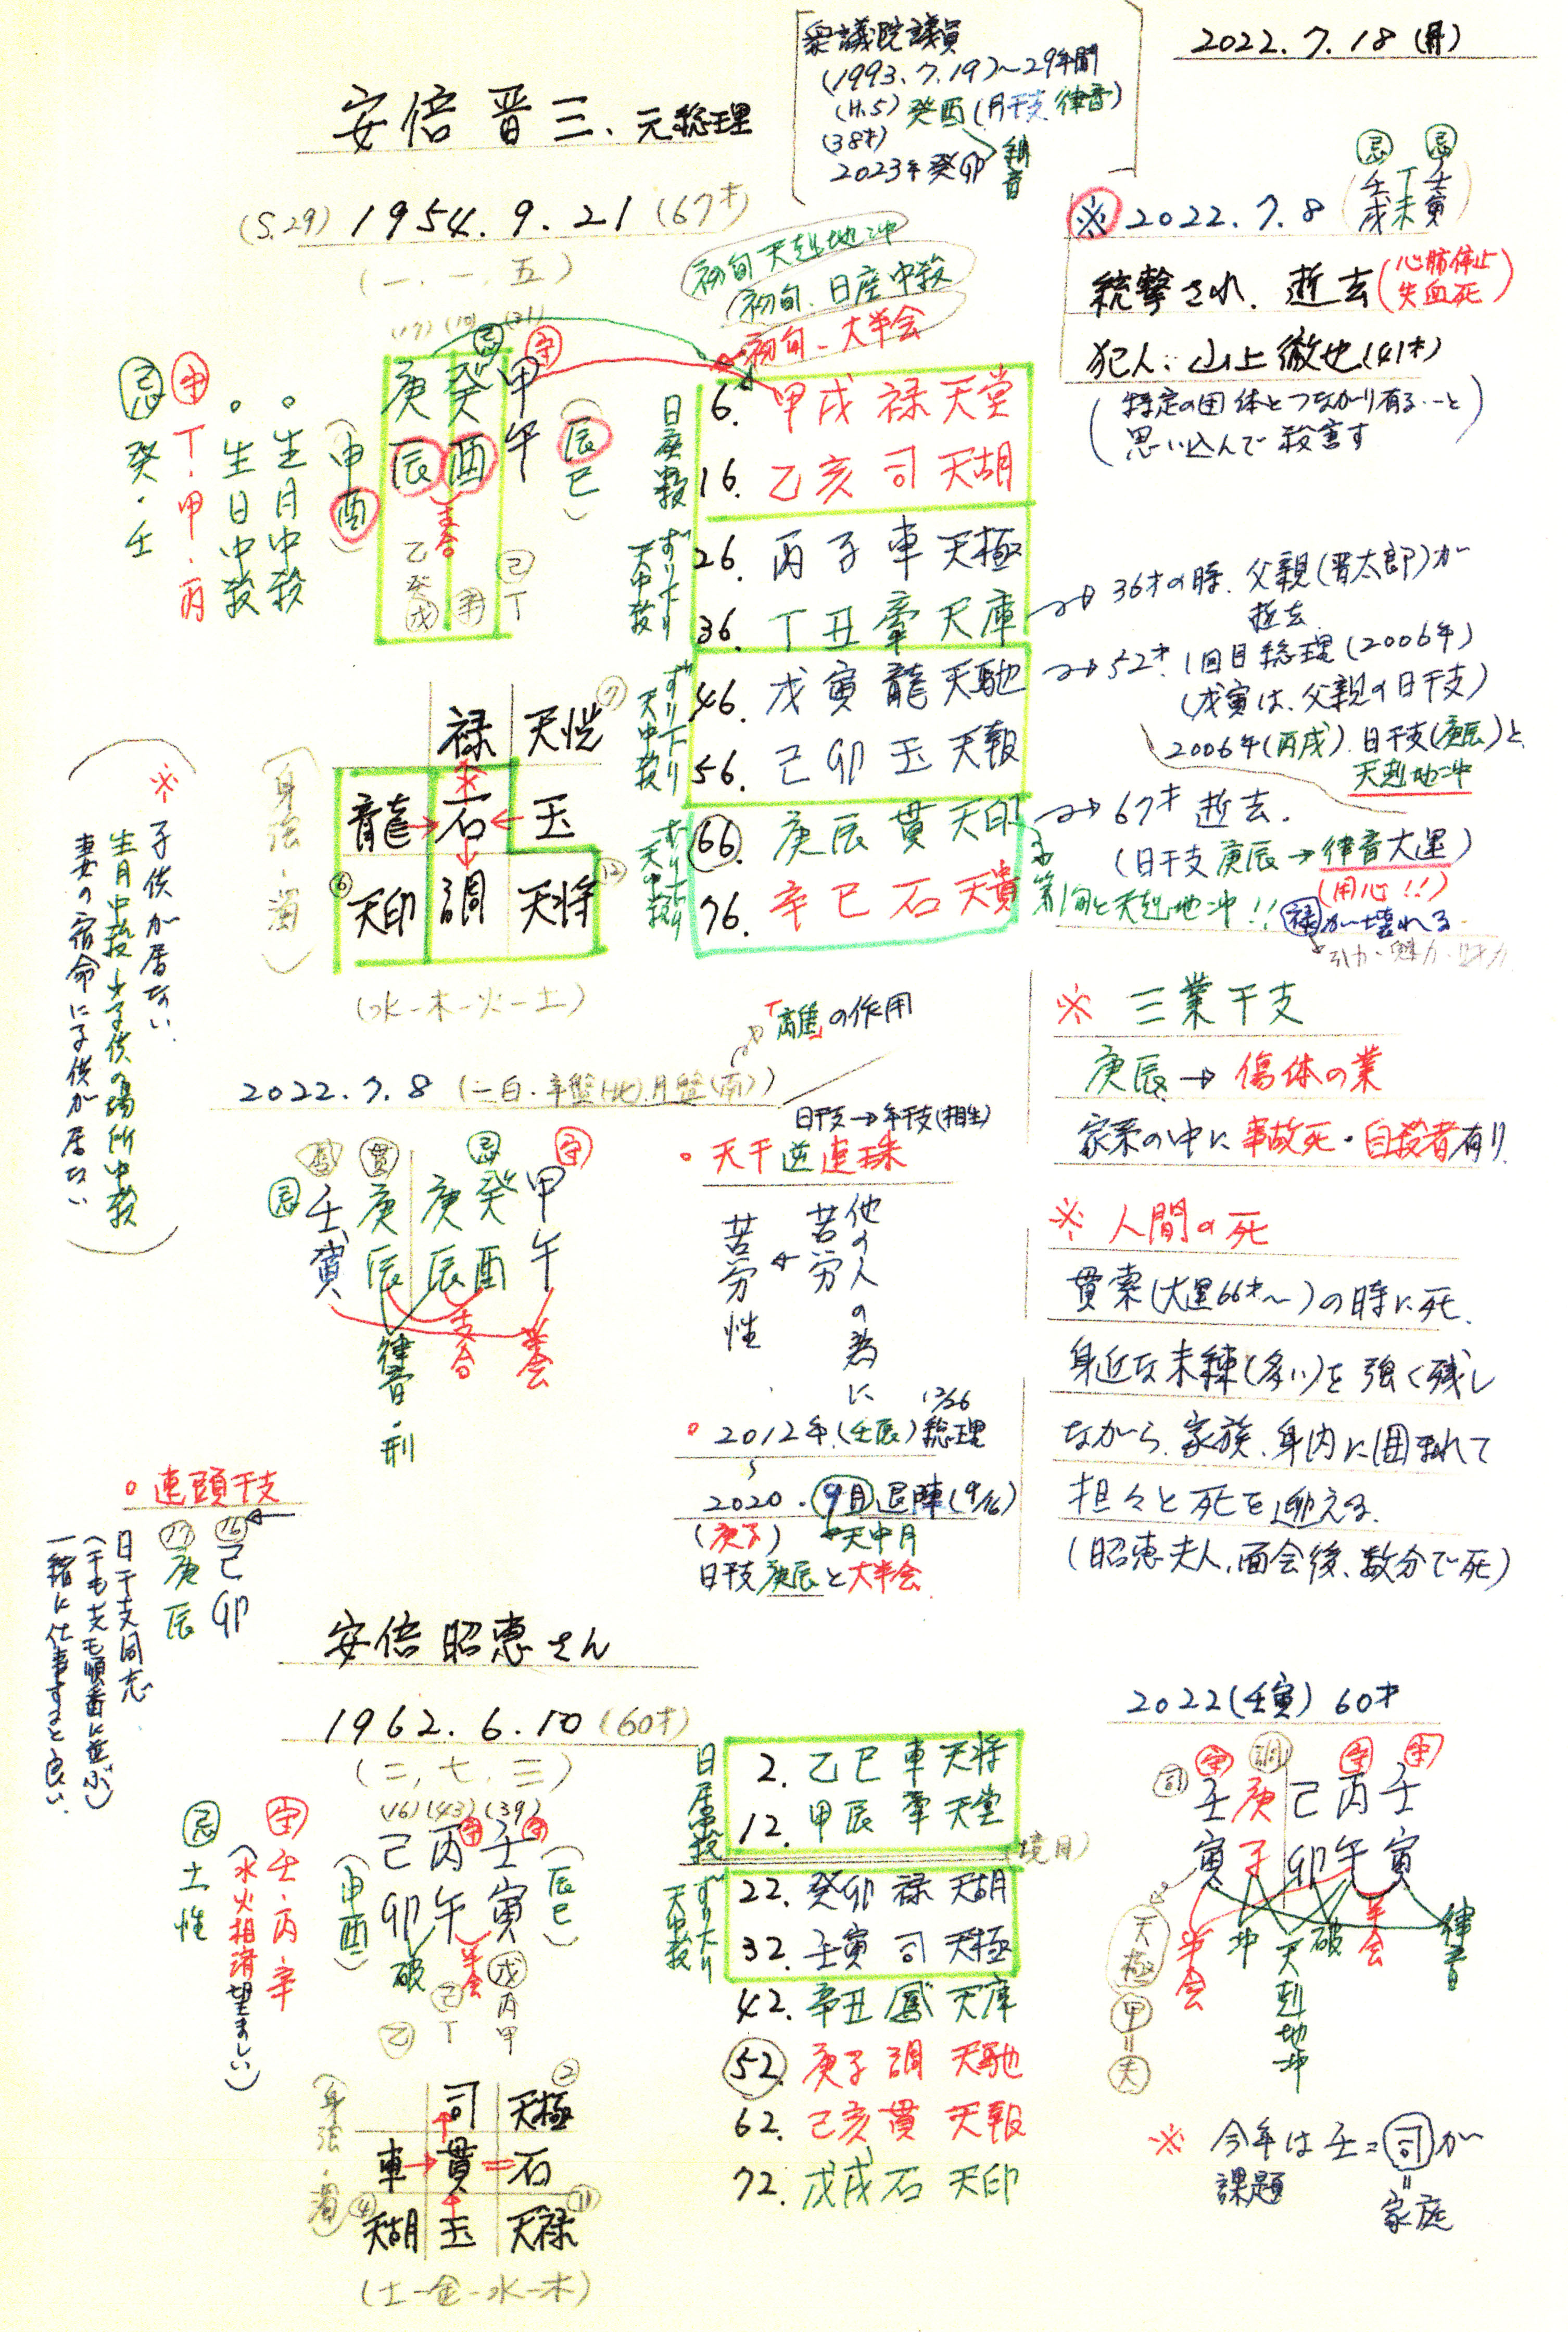 2022.7.18(月)
衆議院議員
(1993.7.19)～29年間
(H.5) 癸酉(月干支、律音)
(38才)
2023年癸卯
納音
安倍晋三、元総理
(S.29) 1954.9.21 (67才)
(一、一、五)
(17) (10) (31)
忌
守
庚 癸 甲
辰 酉 午
(辰巳)
(申酉)
支合
乙 癸 戊
辛
己 丁
。生月中殺
。生日中殺
守 丁・甲・丙
忌 癸・壬
初旬天剋地冲
初旬、日座中殺
初旬、大半会
日座中殺
6. 甲戌 禄 天堂
16. 乙亥 司 天胡
ずり下り
天中殺
26. 丙子 車 天極
36. 丁丑 牽 天庫
ずり下り
天中殺
46. 戊寅 龍 天馳
56. 己卯 玉 天報
ずり下り
天中殺
66. 庚辰 貫 天印
76. 辛巳 石 天貴
忌 忌
壬 丁 壬
戌 未 寅
※ 2022.7.8
銃撃され、逝去(心肺停止
失血死)
犯人：山上徹也(41才)
(特定の団体とつながり有る…と
思い込んで殺害す)
→36才の時、父親(晋太郎)が
逝去
→52才、1回目総理(2006年)
(戊寅は、父親の日干支)
2006年(丙戌)、日干支(庚辰)と
天剋地冲
→67才 逝去.
(日干支 庚辰→律音大運)
(用心!!)
第1旬と天剋地冲!!
禄が壊れる
引力・魅力・財力
禄 天恍 7
龍 石 玉
6 天印 調 天将 12
(身強・濁)
(水-木-火-土)
※子供が居ない
生月中殺→子供の場所中殺
妻の宿命に子供が居ない
「離」の作用
2022.7.8 (二白・年盤(北)月盤(南))
鳳 貫 忌 守
忌
壬 庚 庚 癸 甲
寅 辰 辰 酉 午
律音・刑
支合
半会
日干支→年干支(相生)
。天干逆連珠
他の人の為に
苦労
苦労性
12/26
。2012年(壬辰)総理
～
2020.9月退陣(9/16)
(庚子) 天中月
日干支庚辰と大半会
※ 三業干支
庚辰→傷体の業
家系の中に事故死・自殺者有り
※ 人間の死
貫索(大運66才～)の時に死、
身近な未練(多い)を強く残し
ながら、家族、身内に囲まれて
担々と死を迎える.
(昭恵夫人、面会後、数分で死)
。連頭干支
17 16
庚 己
辰 卯
日干支同志
(干も支も順番に並ぶ)
一緒に仕事すると良い.
安倍昭恵さん
1962.6.10 (60才)
(二、七、三)
(16) (43) (39)
守 守
己 丙 壬
卯 午 寅
(辰巳)
(申酉)
破
半会
乙
己 丁
戊 丙 甲
守 壬・丙・辛
(水火相済望ましい)
忌 土性
司 天極 2
車 貫 石
4 天胡 玉 天禄 11
(身強・濁)
(土-金-水-木)
日居中殺
2. 乙巳 車 天将
12. 甲辰 牽 天堂
(境目)
ずり下り
天中殺
22. 癸卯 禄 天胡
32. 壬寅 司 天極
42. 辛丑 鳳 天庫
52. 庚子 調 天馳
62. 己亥 貫 天報
72. 戊戌 石 天印
2022(壬寅) 60才
守 調 守 守
司
壬 庚 己 丙 壬
寅 子 卯 午 寅
天極
甲
夫
半会
冲
天剋地冲
破
半会
律音
※ 今年は壬=司が
課題
家庭